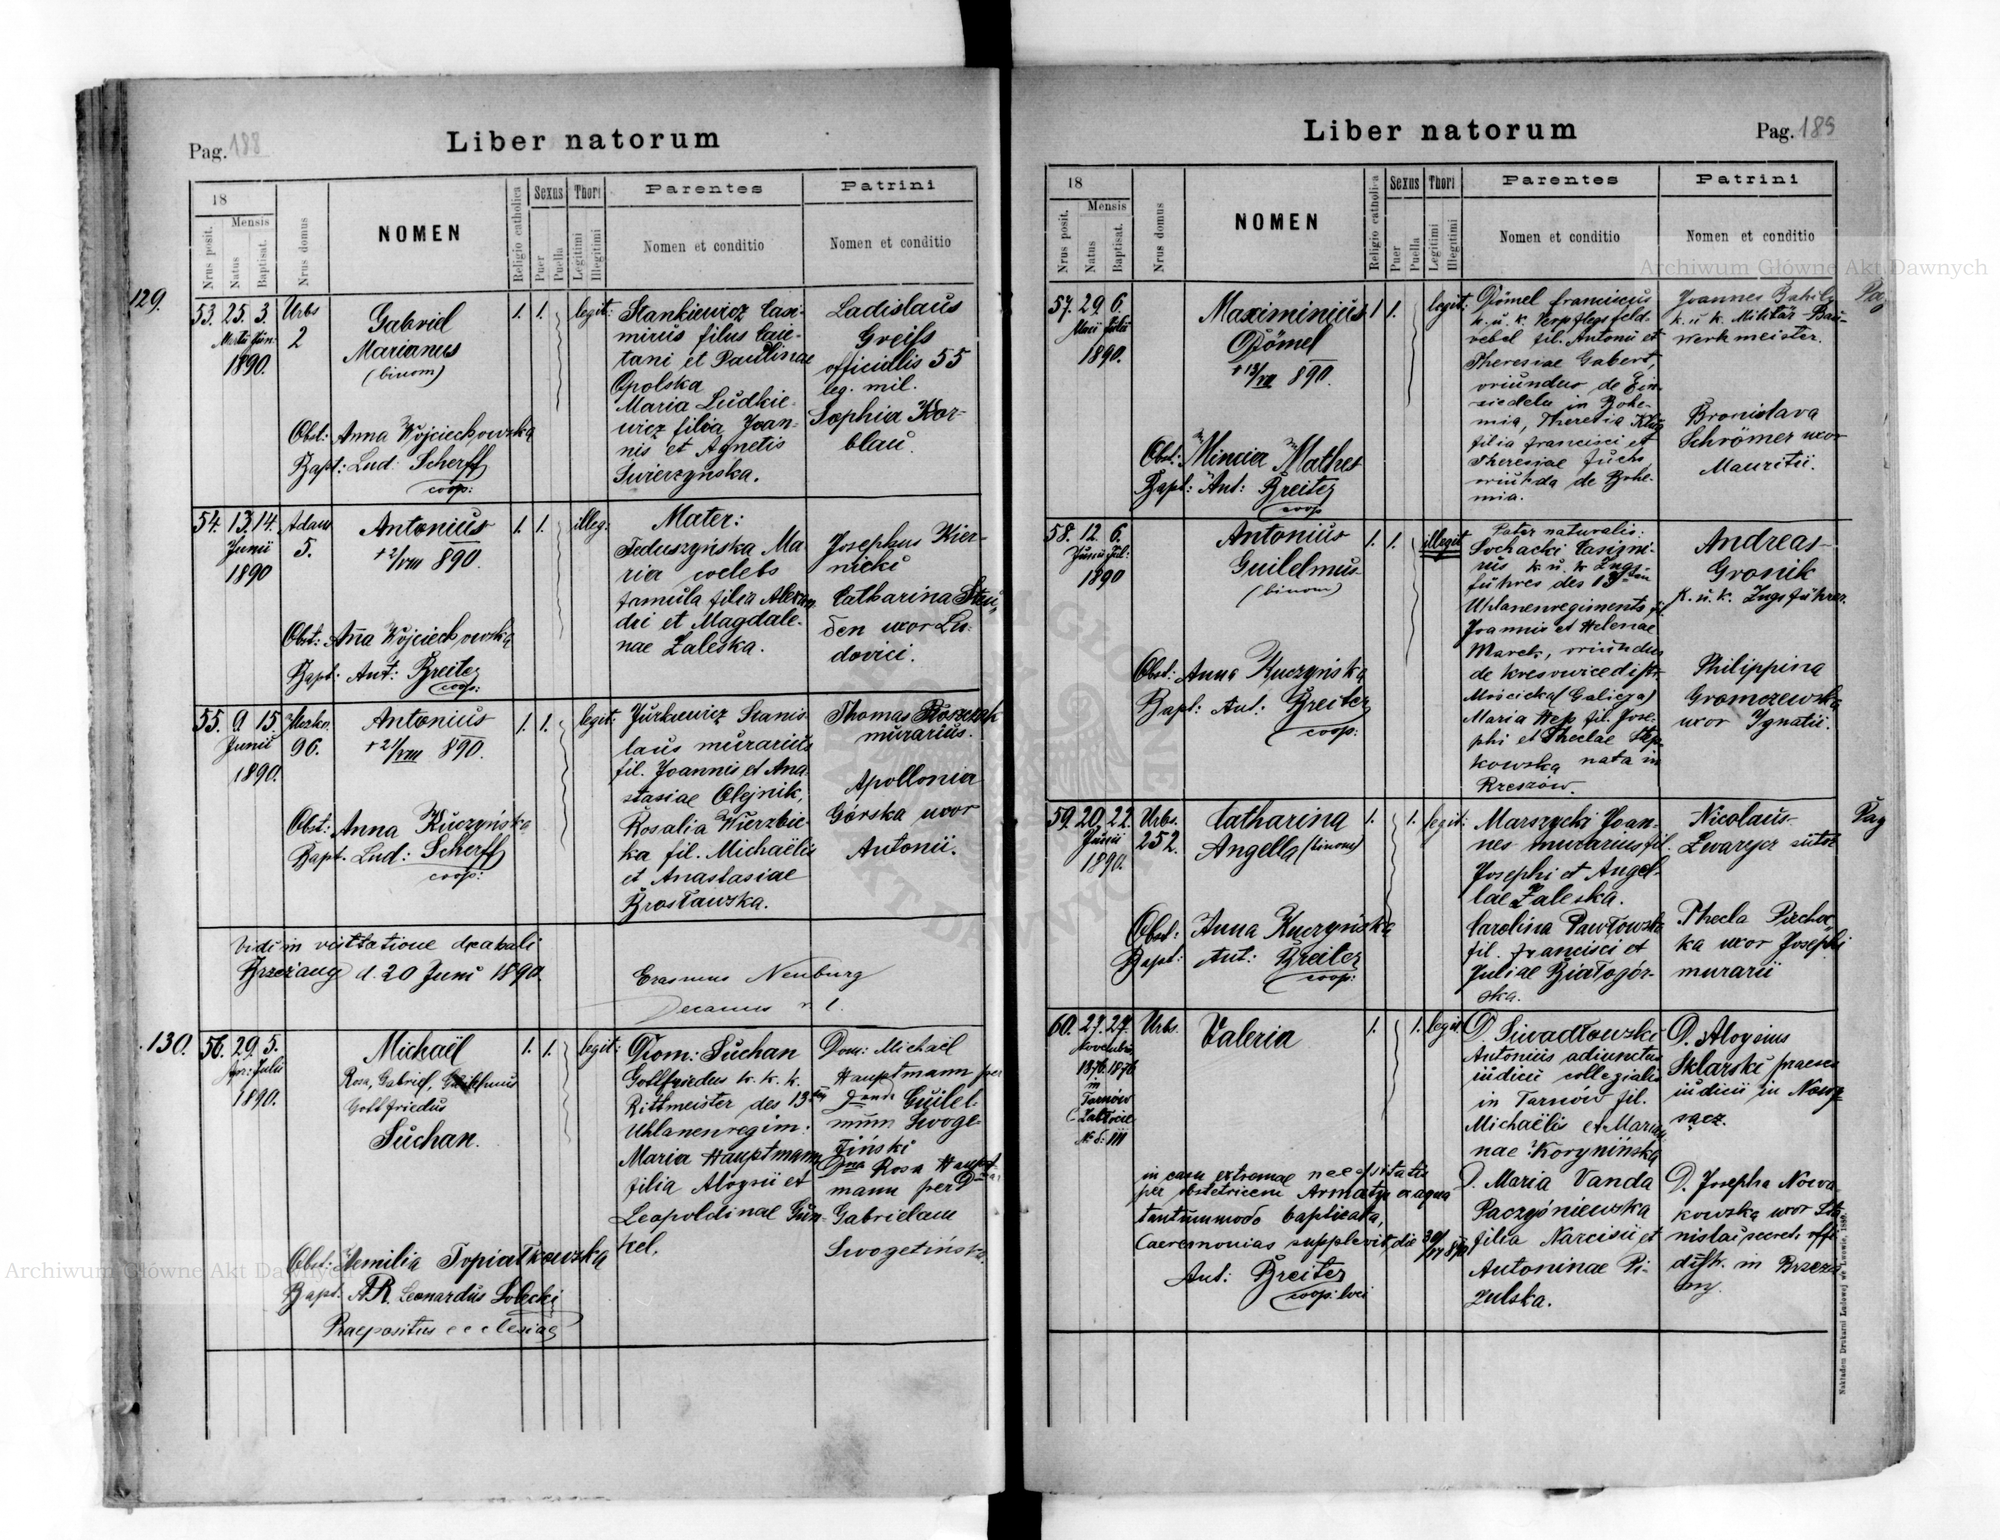 Pag. 188
Liber natorum
18
Mensis
Nrus posit.
Natus
Baptisat.
Nrus domus
NOMEN
Religio catholica
Sexus
Puer
Puella
Thori
Legitimi
Illegitimi
Parentes
Nomen et conditio
Patrini
Nomen et conditio
129.
53. 25. 3. Urbs
1890. 2
Gabriel
Marianus
(binom)
Obst: Anna Wojciechowska
Bapt: Lud: Scherff
coop:
1. 1. legit:
Stankiewicz Casi-
mirus filius Caie-
tani et Paulinae
Opolska
Maria Ludkie-
wicz filia Joan-
nis et Agnetis
Swierzyńska.
Ladislaus
Greiss
officialis 55
leg. mil.
Sophia Kor-
blau.
54. 13. 14. Adam
Junii 5.
1890
Antonius
+2/VIII 890.
Obst: Anna Wojciechowska
Bapt: Ant: Breiter
coop:
1. 1. illeg:
Mater:
Feduszyńska Ma
ria coelebs
famula filia Alexan
dri et Magdale-
nae Zaleska.
Josephus Kier-
nicki
Catharina
den uxor Lu-
dovici.
55. 9 15.
Junii 96.
1890.
Antonius
+2/VIII 890.
Obst: Anna Kuczyńska
Bapt. Lud: Scherff
coop:
1. 1. legit:
Jurkiewicz Stanis
laus murarius
fil. Joannis et Ana
stasiae Olejnik,
Rosalia Wierzbic-
ka fil. Michaëlis
et Anastasiae
Brosławska.
Thomas
murarius.
Apollonia
Górska uxor
Antonii.
Vidi in visitatione decanali
d. 20 Juni 1890.
Erasmus Neuburg
Decanus
130.
56. 29. 5.
Apr: Julii
1890.
Michaël
Rosa, Gabriel, Guilelmus
Gottfriedus
Suchan.
Obst: Aemilia Topiatkowska
Bapt: A.R. Leonardus Solecki
Praepositus ecclesiae
1. 1. legit:
Dom: Suchan
Gottfriedus k. k. k.
Rittmeister des 13ten
Uhlanenregim:
Maria Hauptmann
filia Aloysii et
Leopoldinae Gün-
kel.
Dom: Michaël
Hauptmann per
Guilel-
mum Swoge-
tiński
Dna Rosa Haupt-
mann per
Gabrielam
Swogetińska.
Liber natorum
Pag. 189
18
Mensis
Nrus posit.
Natus
Baptisat.
Nrus domus
NOMEN
Religio catholica
Sexus
Puer
Puella
Thori
Legitimi
Illegitimi
Parentes
Nomen et conditio
Patrini
Nomen et conditio
Archiwum Główne Akt Dawnych
57. 29. 6.
1890.
Maximinius
Dömel
+13/VII 890.
Obst: Mincia Mathes
Bapt: Ant: Breiter
coop
1 1. legit:
Dömel franciscus
k. u. k. Verpflegsfeld-
vebel fil. Antonii et
Theresiae Gabert,
oriundus de Ein-
siedeln in Bohe-
mia, Theresia Klug
filia francisci et
Theresiae Fuchs,
oriunda de Bohe-
mia.
Joannes
k. u k. Militär-Bau-
werkmeister.
Bronislava
Schrömer uxor
Mauritii.
58. 12. 6.
Junii Jul.
1890
Antonius
Guilelmus
(binom)
Obst: Anna Kuczyńska
Bapt: Ant: Breiter
coop:
1. 1. illegit
Pater naturalis:
Sochacki Casimi-
rus k u. k Zugs-
führes des 13ten
Uhlanenregiments fil
Joannis et Helenae
Marek, oriundus
de kresowice distr.
Mościcka (Galicja)
Maria Hep fil. Jose-
phi et Theclae Step
kowska nata in
Rzeszów.
Andreas
Gronik
K. u. k. Zugsführer.
Philippina
Gromczewska
uxor Ignatii.
59. 20. 22. Urbs.
Junii 252.
1890.
Catharina
Angella (binom)
Obst: Anna Kuczyńska
Bapt: Ant: Breiter
coop:
1. 1. legit:
Marszycki Joan-
nes murarius fil.
Josephi et Angel-
lae Zaleska.
Carolina Pawłowska
fil. francisci et
Juliae Białogór-
ska.
Nicolaus
Zwarycz sutor
Thecla Pircha-
ka uxor Josephi
murarii
60. 27. 27. Urbs.
Novembris
1876. 1876
in
Tarnów
Zabłocie
Valeria
in casu extremae necessitatis
per obstetricem Armatys ex aqua
tantummodo baptizata,
Caeremonias supplevit, die
Ant: Breiter
coop: loci
1. 1. legit
D. Siwadłowski
Antonius adiunctus
iudicii collegialis
in Tarnów fil.
Michaëlis et Marian
nae Korynińska
D. Maria Vanda
Paczyóniewska
filia Narcisii et
Antoninae Pi-
zulska.
D. Aloysius
Sklarski praeses
iudicii in Nowy
sącz.
D. Josepha Nowa
kowska uxor Sta
nislai, secret. offi
distr. in Brzeża
ny.
Nakładem Drukarni Ludowej we Lwowie, 1889.
Archiwum Główne Akt Dawnych